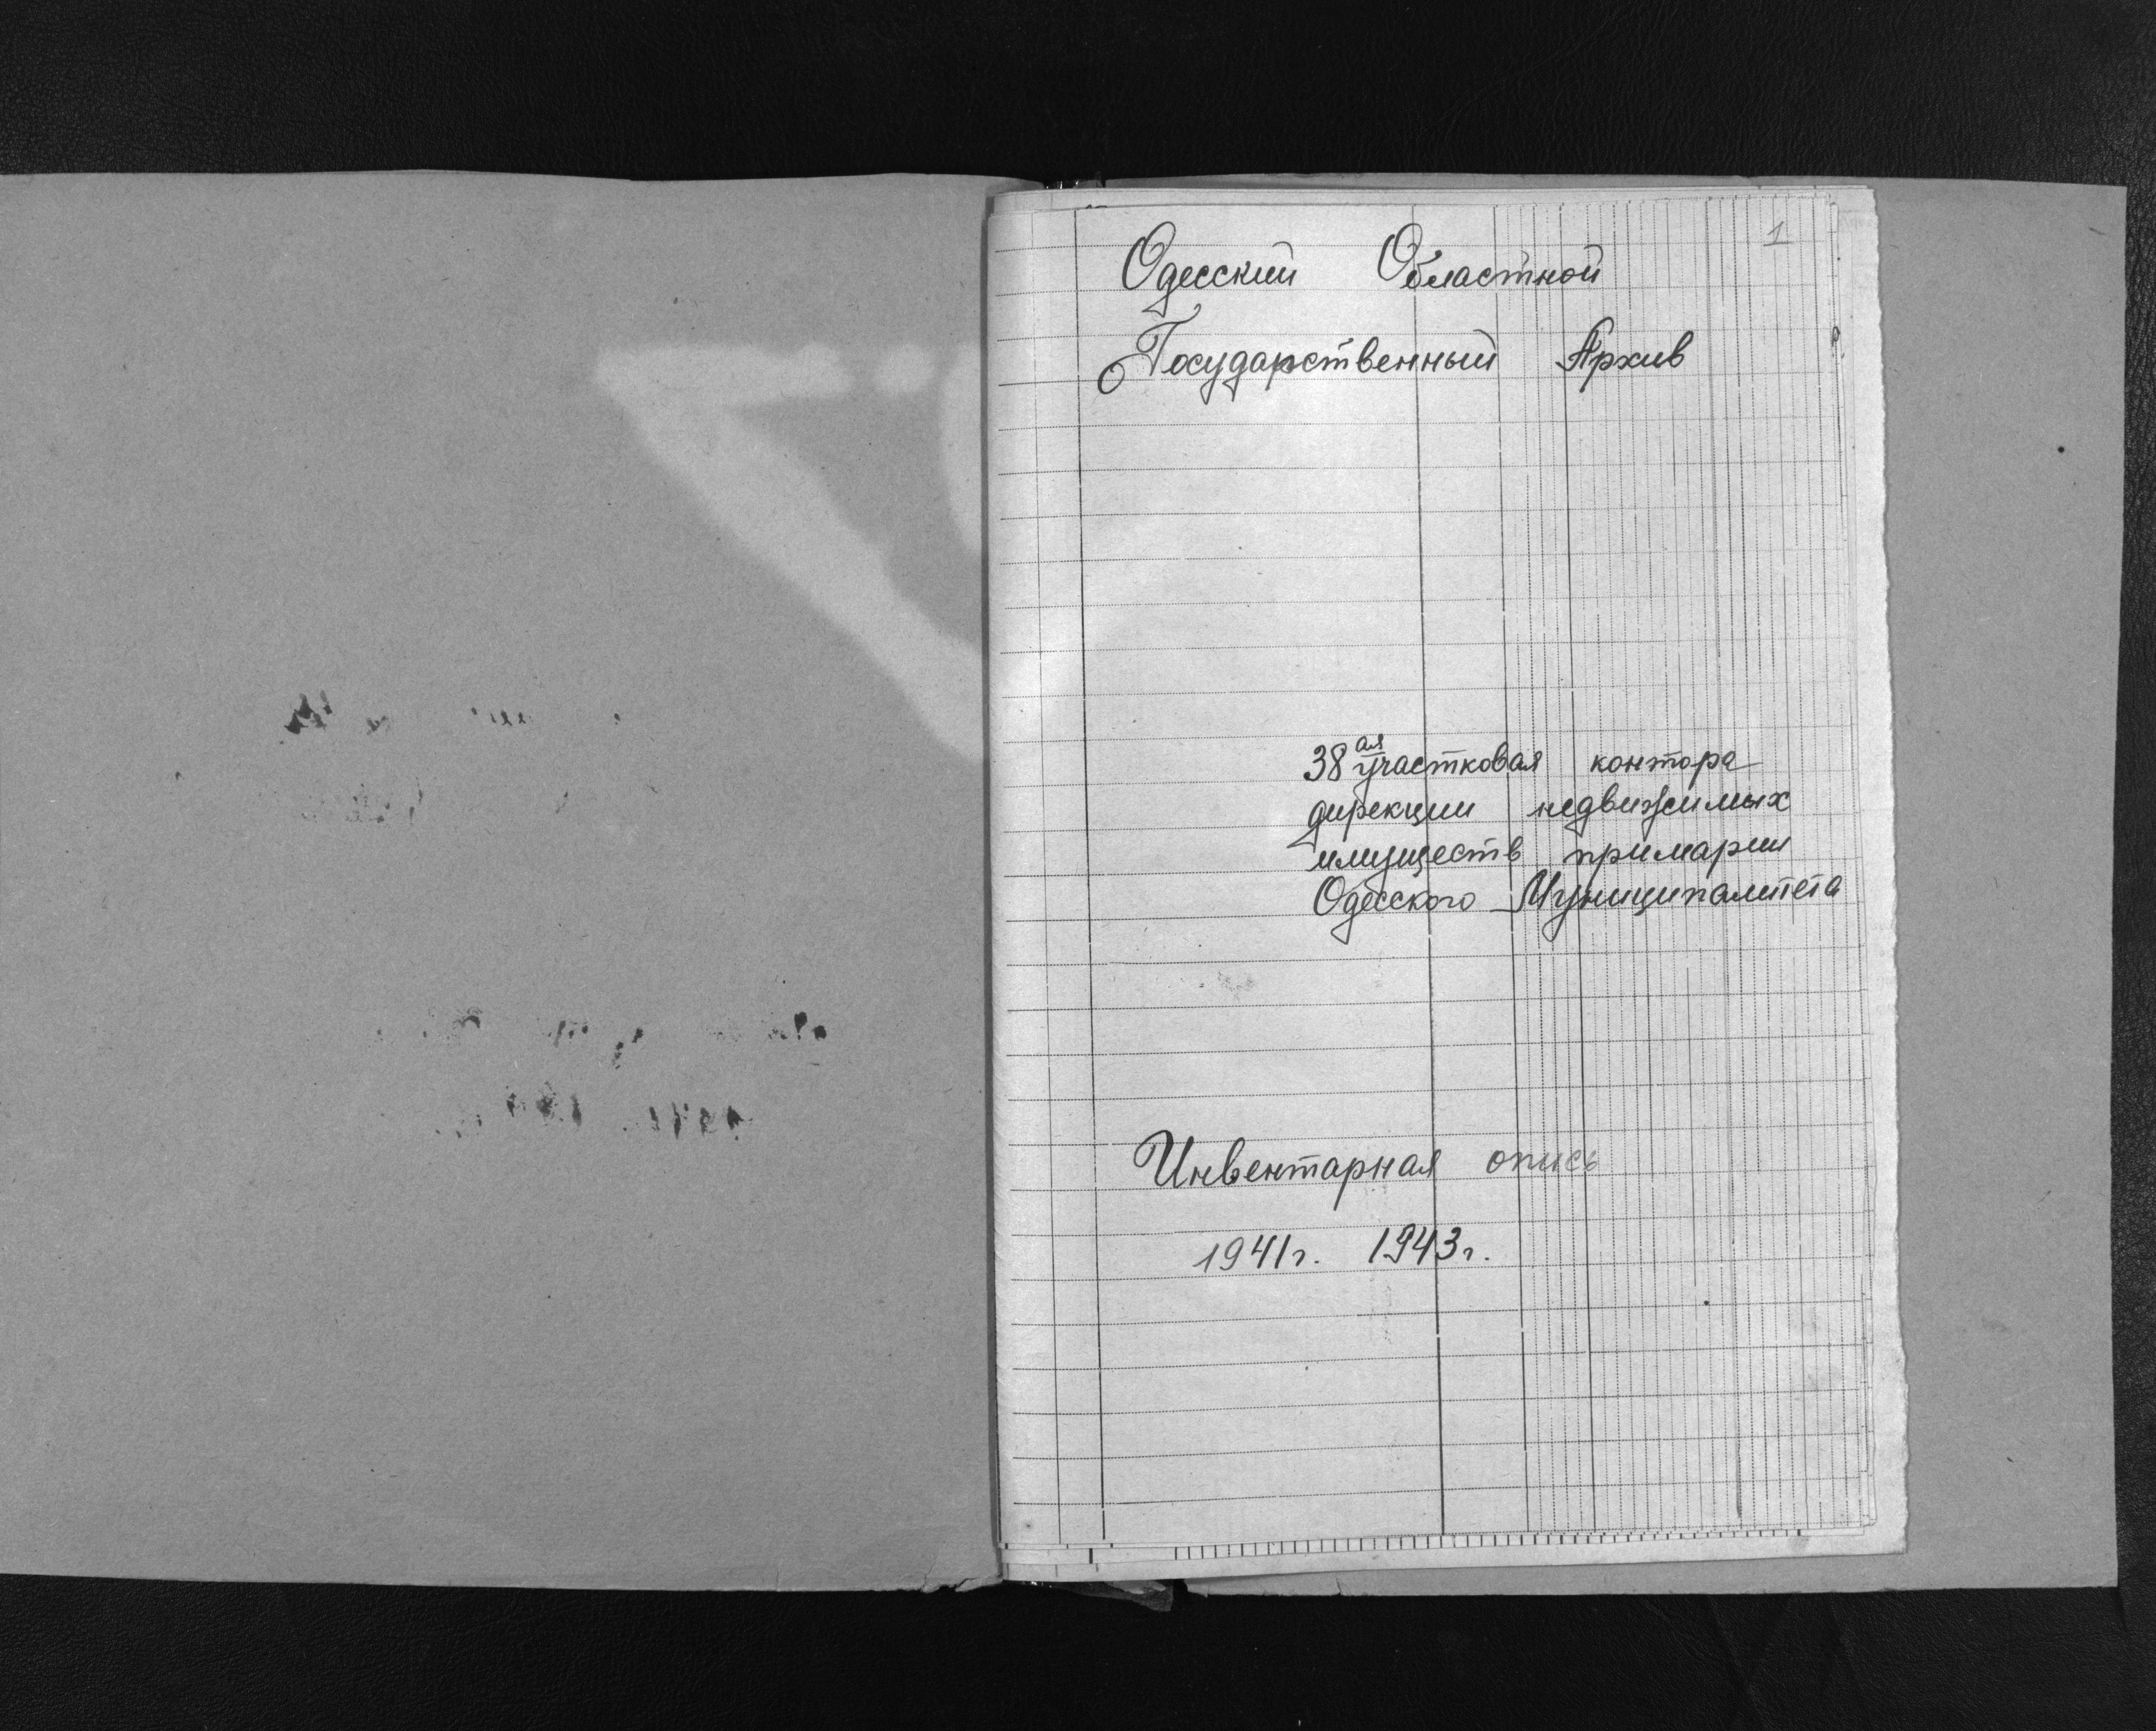 1
Одесский Областной
Государственный Архив
38ая участковая контора
дирекции недвижимых
имуществ примарии
Одесского Муниципалитета
Инвентарная опись
1941г. 1943г.